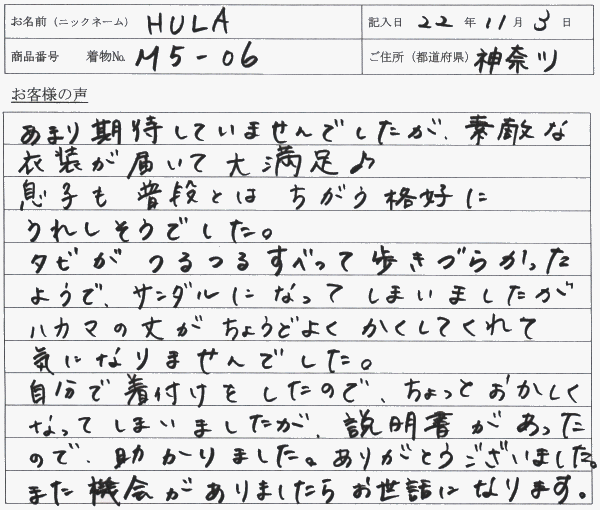 お名前（ニックネーム） HULA 記入日 22 年 11 月 3 日
商品番号 着物No. M5-06 ご住所（都道府県） 神奈川
お客様の声
あまり期待していませんでしたが、素敵な
衣装が届いて大満足♪
息子も普段とは ちがう格好に
うれしそうでした。
タビが つるつる すべって 歩きづらかった
ようで、サンダルになって しまいましたが
ハカマの丈が ちょうどよく かくしてくれて
気になりませんでした。
自分で着付けをしたので、ちょっとおかしく
なってしまいましたが、説明書があった
ので、助かりました。ありがとうございました。
また機会がありましたらお世話になります。